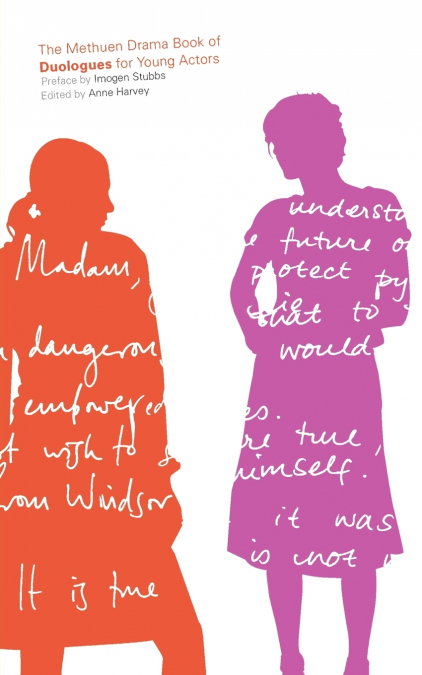 The Methuen Drama Book of
Duologues for Young Actors
Preface by Imogen Stubbs
Edited by Anne Harvey
Madam,
dangerou
empowered
t wish to
rom Windsor
It is true
understa
e future o
protect py
that to
would
es.
re true,
himself.
it was
is not